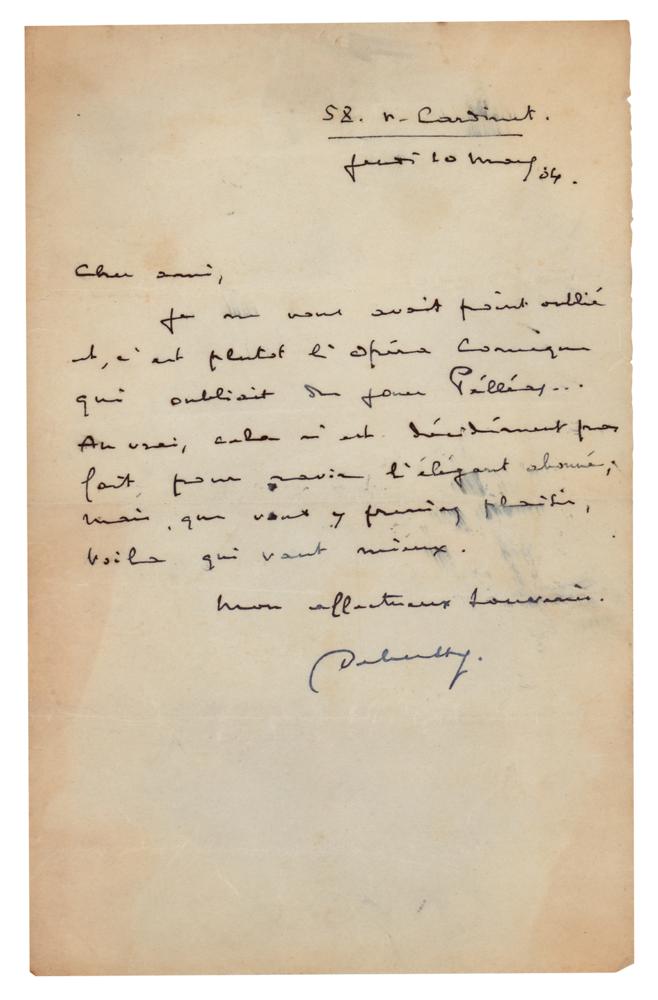 58. r. Cardinet.
Jeudi 10 Mars 04.
Cher ami,
Je ne vous avait point oublié
et, c'est plutot l'Opéra Comique
qui oubliait de jouer Pélléas...
Au vrai, cela n'est décidément pas
fait pour ravir l'élégant abonné;
mais, que vous y preniez plaisir,
voila qui vaut mieux.
Mon affectueux souvenir.
Debussy.